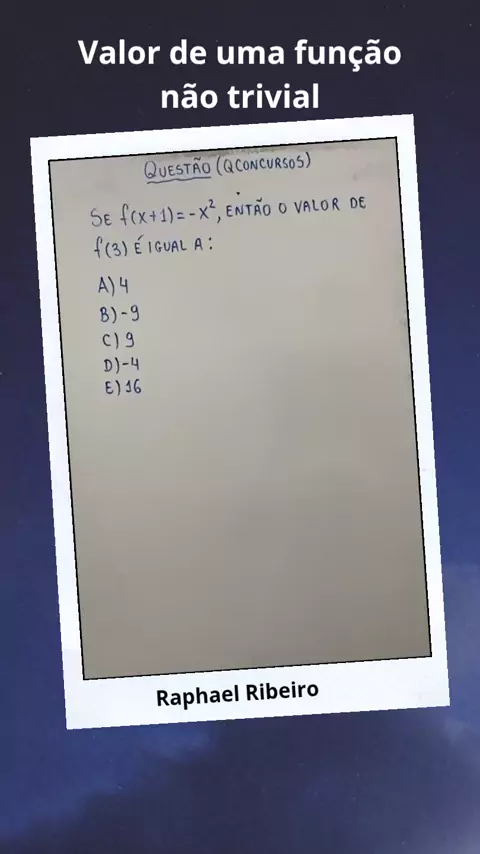 Valor de uma função
não trivial
QUESTÃO (QCONCURSOS)
SE f(x+1)=-x², ENTÃO O VALOR DE
f(3) É IGUAL A:
A) 4
B) -9
C) 9
D) -4
E) 16
Raphael Ribeiro